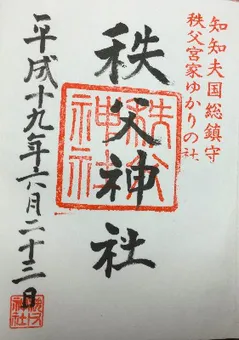 知知夫国総鎮守
秩父宮家ゆかりの社
秩父神社
秩父神社
平成十九年六月二十三日
秩父神社